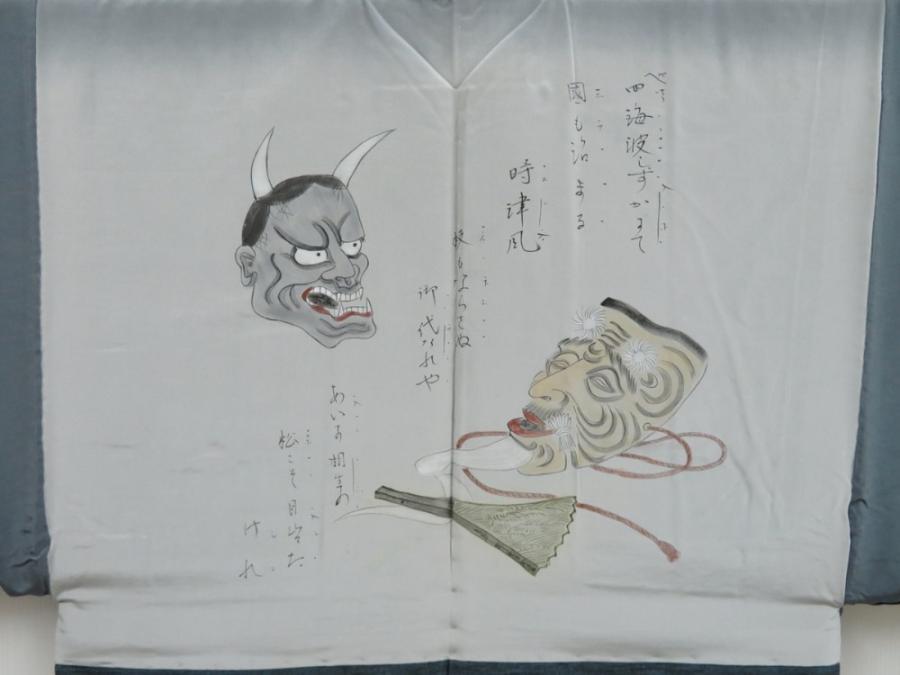 四海波しずかにて
國も治まる
時津風
枝もならさぬ
御代なれや
あいに相生の
松こそ目出た
けれ